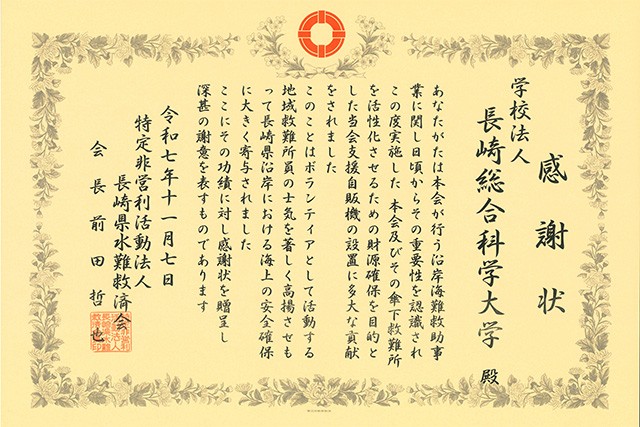 感謝状
学校法人
長崎総合科学大学 殿
あなたがたは本会が行う沿岸海難救助事
業に関し日頃からその重要性を認識され
この度実施した 本会及びその傘下救難所
を活性化させるための財源確保を目的と
した当会支援自販機の設置に多大な貢献
をされました
このことはボランティアとして活動する
地域救難所員の士気を著しく高揚させも
って長崎県沿岸における海上の安全確保
に大きく寄与されました
ここにその功績に対し感謝状を贈呈し
深甚の謝意を表すものであります
令和七年十一月七日
特定非営利活動法人
長崎県水難救済会
会長 前田哲也